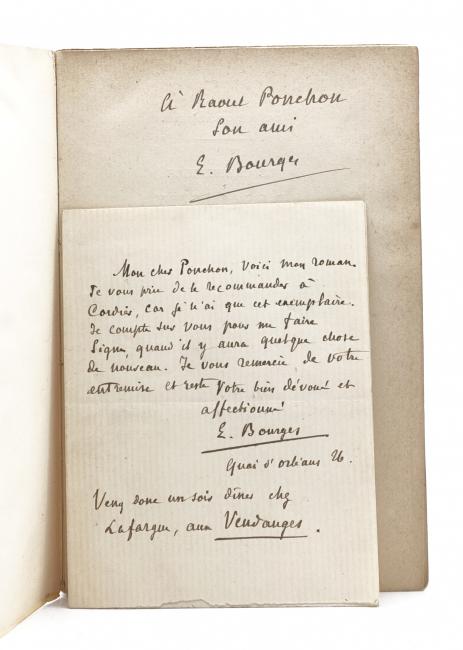 à Raoul Ponchon
Son ami
E. Bourges
Mon cher Ponchon, Voici mon roman.
Je vous prie de le recommander à
car je n'ai que cet exemplaire.
Je compte sur vous pour me faire
Signe, quand il y aura quelque chose
de nouveau. Je vous remercie de votre
entremise et reste Votre bien dévoué et
affectionné
E. Bourges
Quai d'orléans 26.
Venez donc un soir dîner chez
Lafargue, aux Vendanges.